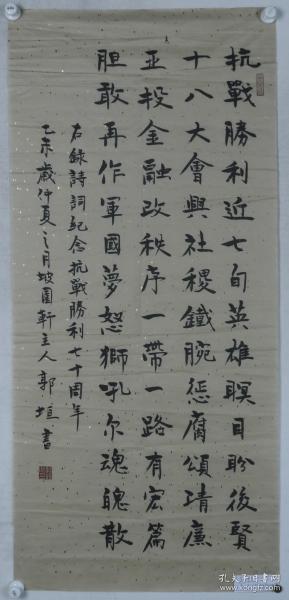 抗戰勝利近七旬英雄瞑目盼後賢
十八大會興社稷鐵腕惩腐頌清廉
亚投金融改秩序一帶一路有宏篇
胆敢再作軍國夢怒獅吼尔魂魄散
右錄詩詞紀念抗戰勝利七十周年
乙未歲仲夏之月坡園軒主人郭垣書
孔夫子旧书网